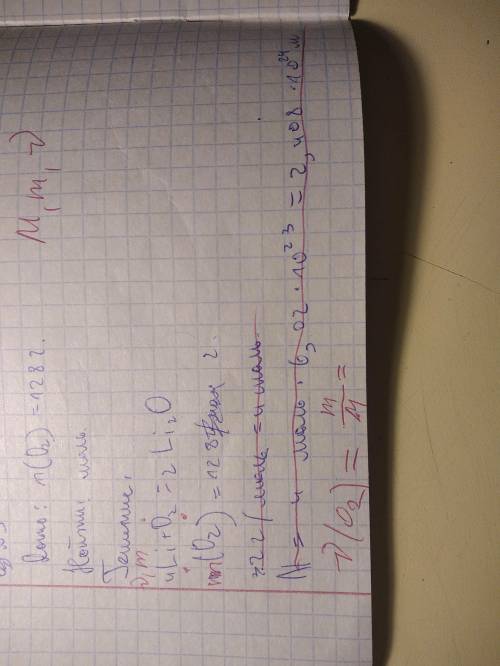 M, m, ν
Дано: n(O₂) = 128 г.
Найти: моль.
Решение:
ν, m
4Li + O₂ = 2Li₂O
m(O₂) = 128 г.
32 г/моль = 4 моль
N = 4 моль · 6,02 · 10²³ = 2,408 · 10²⁴ м
ν(O₂) = m/M =